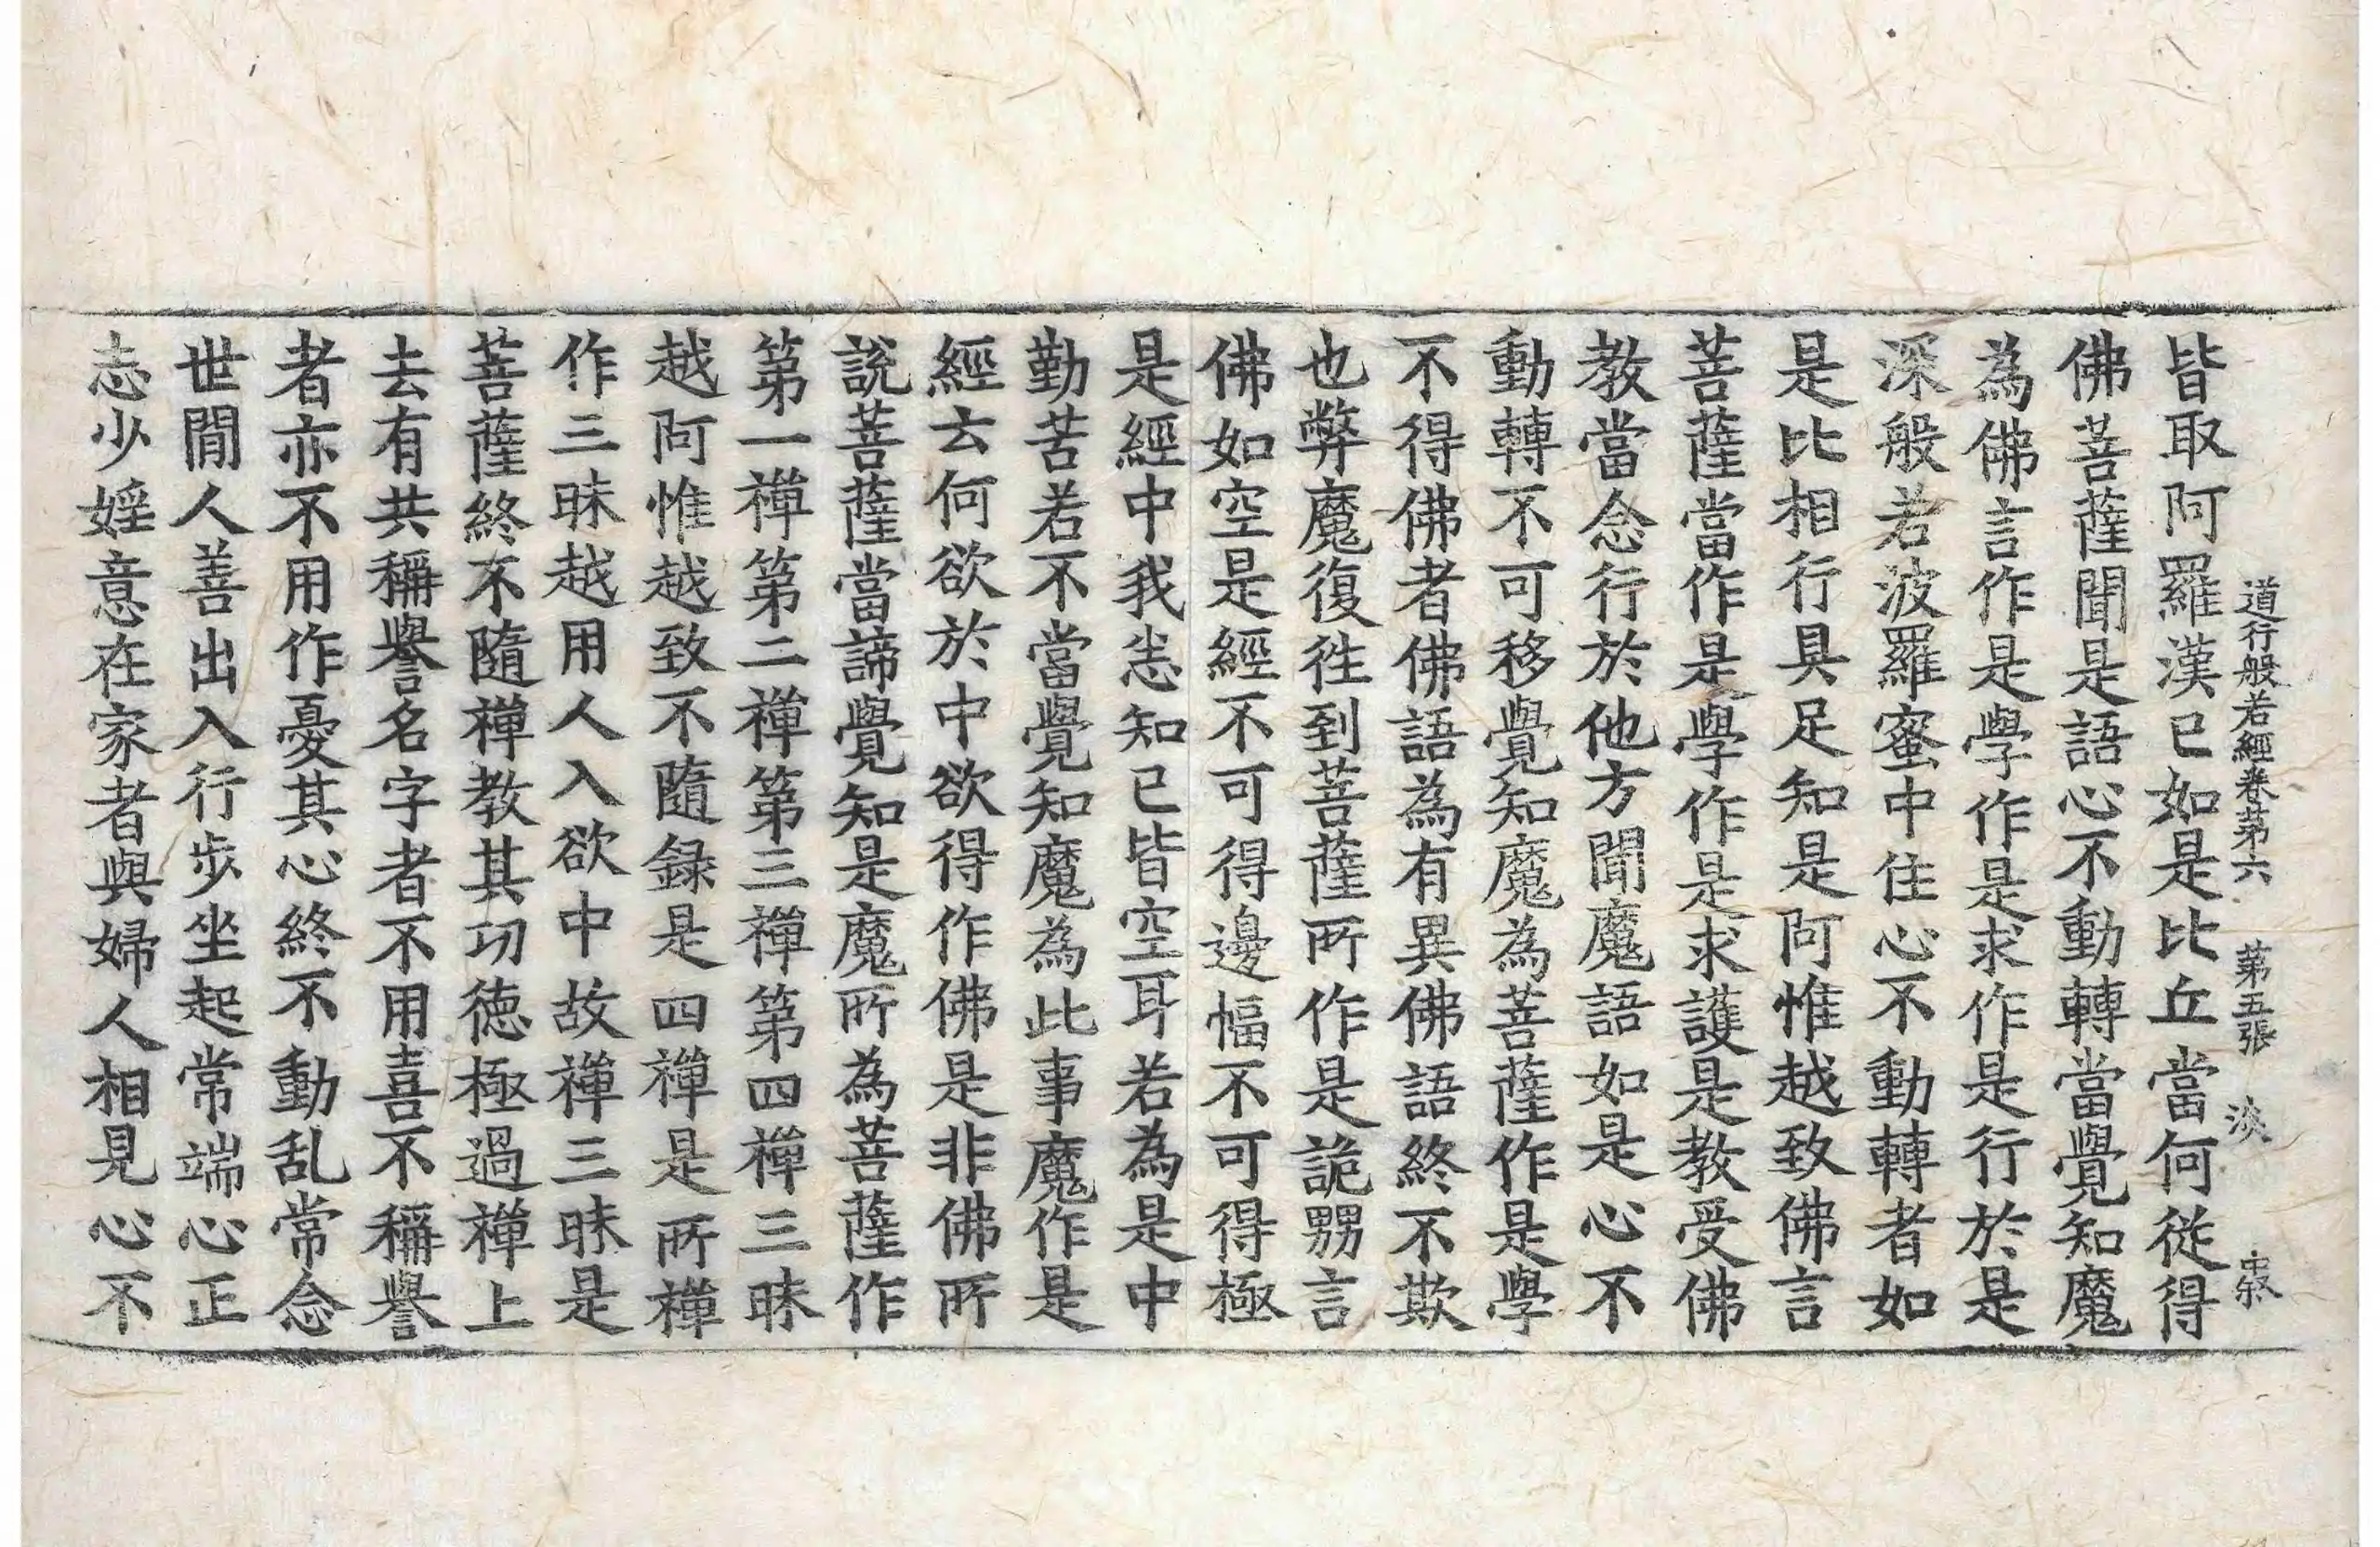 道行般若經卷第六 第五張 淡
皆取阿羅漢已如是比丘當何從得
佛菩薩聞是語心不動轉當覺知魔
為佛言作是學作是求作是行於是
深般若波羅蜜中住心不動轉者如
是比相行具足知是阿惟越致佛言
菩薩當作是學作是求護是教受佛
教當念行於他方聞魔語如是心不
動轉不可移覺知魔為菩薩作是學
不得佛者佛語為有異佛語終不欺
也弊魔復徃到菩薩所作是詭嬲言
佛如空是經不可得邊幅不可得極
是經中我恙知已皆空耳若為是中
勤苦若不當覺知魔為此事魔作是
經云何欲於中欲得作佛是非佛所
說菩薩當諦覺知是魔所為菩薩作
第一禪第二禪第三禪第四禪三昧
越阿惟越致不隨録是四禪是所禪
作三昧越用人入欲中故禪三昧是
菩薩終不隨禪教其功德極過禪上
去有共稱譽名字者不用喜不稱譽
者亦不用作憂其心終不動乱常念
世閒人善出入行步坐起常端心正
志少婬意在家者與婦人相見心不